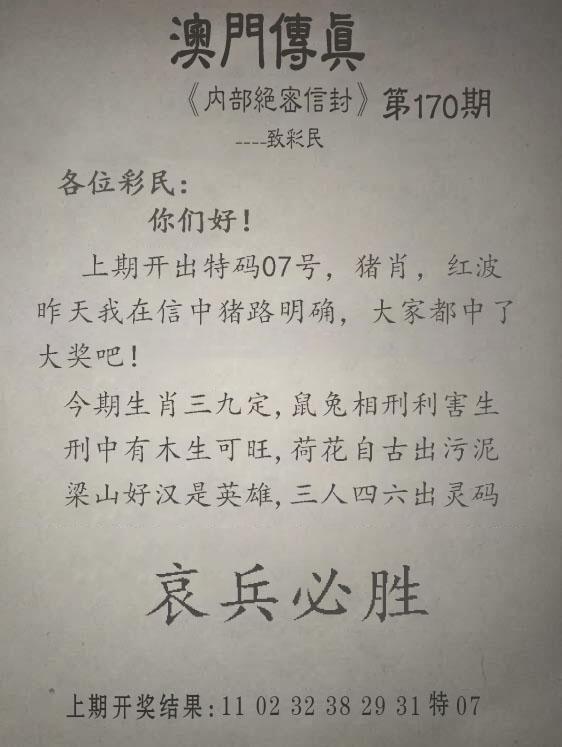 澳門傳眞
《内部絕密信封》第170期
----致彩民
各位彩民：
你们好！
上期开出特码07号，猪肖，红波
昨天我在信中猪路明确，大家都中了
大奖吧！
今期生肖三九定,鼠兔相刑利害生
刑中有木生可旺,荷花自古出污泥
梁山好汉是英雄,三人四六出灵码
哀兵必胜
上期开奖结果:11 02 32 38 29 31 特 07